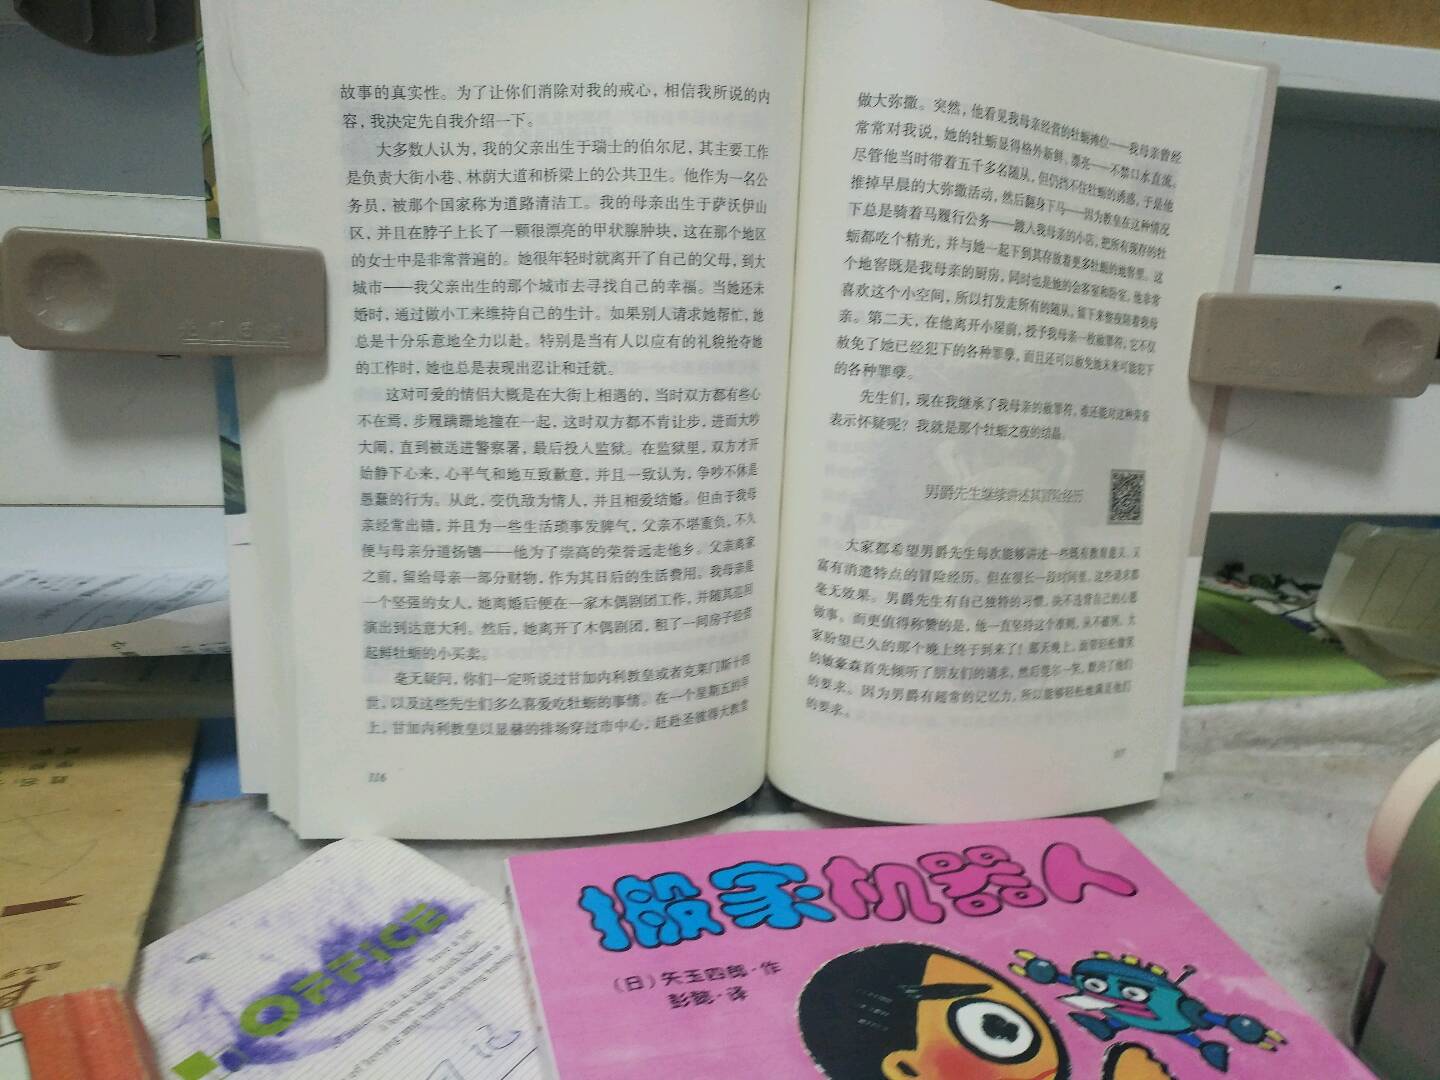 故事的真实性。为了让你们消除对我的戒心，相信我所说的内
容，我决定先自我介绍一下。
大多数人认为，我的父亲出生于瑞士的伯尔尼，其主要工作
是负责大街小巷、林荫大道和桥梁上的公共卫生。他作为一名公
务员，被那个国家称为道路清洁工。我的母亲出生于萨沃伊山
区，并且在脖子上长了一颗很漂亮的甲状腺肿块，这在那个地区
的女士中是非常普遍的。她很年轻时就离开了自己的父母，到大
城市——我父亲出生的那个城市去寻找自己的幸福。当她还未
婚时，通过做小工来维持自己的生计。如果别人请求她帮忙，她
总是十分乐意地全力以赴。特别是当有人以应有的礼貌抢夺她
的工作时，她也总是表现出忍让和迁就。
这对可爱的情侣大概是在大街上相遇的，当时双方都有些心
不在焉，步履蹒跚地撞在一起，这时双方都不肯让步，进而大吵
大闹，直到被送进警察署，最后投入监狱。在监狱里，双方才开
始静下心来，心平气和地互致歉意，并且一致认为，争吵不休是
愚蠢的行为。从此，变仇敌为情人，并且相爱结婚。但由于我母
亲经常出错，并且为一些生活琐事发脾气，父亲不堪重负，不久
便与母亲分道扬镳——他为了崇高的荣誉远走他乡。父亲离家
之前，留给母亲一部分财物，作为其日后的生活费用。我母亲是
一个坚强的女人，她离婚后便在一家木偶剧团工作，并随其巡回
演出到达意大利。然后，她离开了木偶剧团，租了一间房子经营
起鲜牡蛎的小买卖。
毫无疑问，你们一定听说过甘加内利教皇或者克莱门斯十四
世，以及这些先生们多么喜爱吃牡蛎的事情。在一个星期五的早
上，甘加内利教皇以显赫的排场穿过市中心，赶赴圣彼得大教堂
116
做大弥撒。突然，他看见我母亲经营的牡蛎摊位——我母亲曾经
常常对我说，她的牡蛎显得格外新鲜、漂亮——不禁口水直流。
尽管他当时带着五千多名随从，但仍挡不住牡蛎的诱惑，于是他
推掉早晨的大弥撒活动，然后翻身下马——因为教皇在这种情况
下总是骑着马履行公务——踱入我母亲的小店，把所有现存的牡
蛎都吃个精光，并与她一起下到其存放着更多牡蛎的地窖里。这
个地窖既是我母亲的厨房，同时也是她的会客室和卧室。他非常
喜欢这个小空间，所以打发走所有的随从，留下来整夜陪着我母
亲。第二天，在他离开小屋前，授予我母亲一枚赦罪符，它不仅
赦免了她已经犯下的各种罪孽，而且还可以赦免她未来可能犯下
的各种罪孽。
先生们，现在我继承了我母亲的赦罪符，谁还能对这种荣誉
表示怀疑呢？我就是那个牡蛎之夜的结晶。
男爵先生继续讲述其冒险经历
大家都希望男爵先生每次能够讲述一些既有教育意义、又
富有消遣特点的冒险经历。但在很长一段时间里，这些请求都
毫无效果。男爵先生有自己独特的习惯，决不违背自己的心愿
做事。而更值得称赞的是，他一直坚持这个准则，从不破例。大
家盼望已久的那个晚上终于到来了！那天晚上，面带轻松微笑
的敏豪森首先倾听了朋友们的请求，然后莞尔一笑，答应了他们
的要求。因为男爵有超常的记忆力，所以能够轻松地满足他们
的要求。
搬家机器人
（日）矢玉四郎·作
彭懿·译
OFFiCE